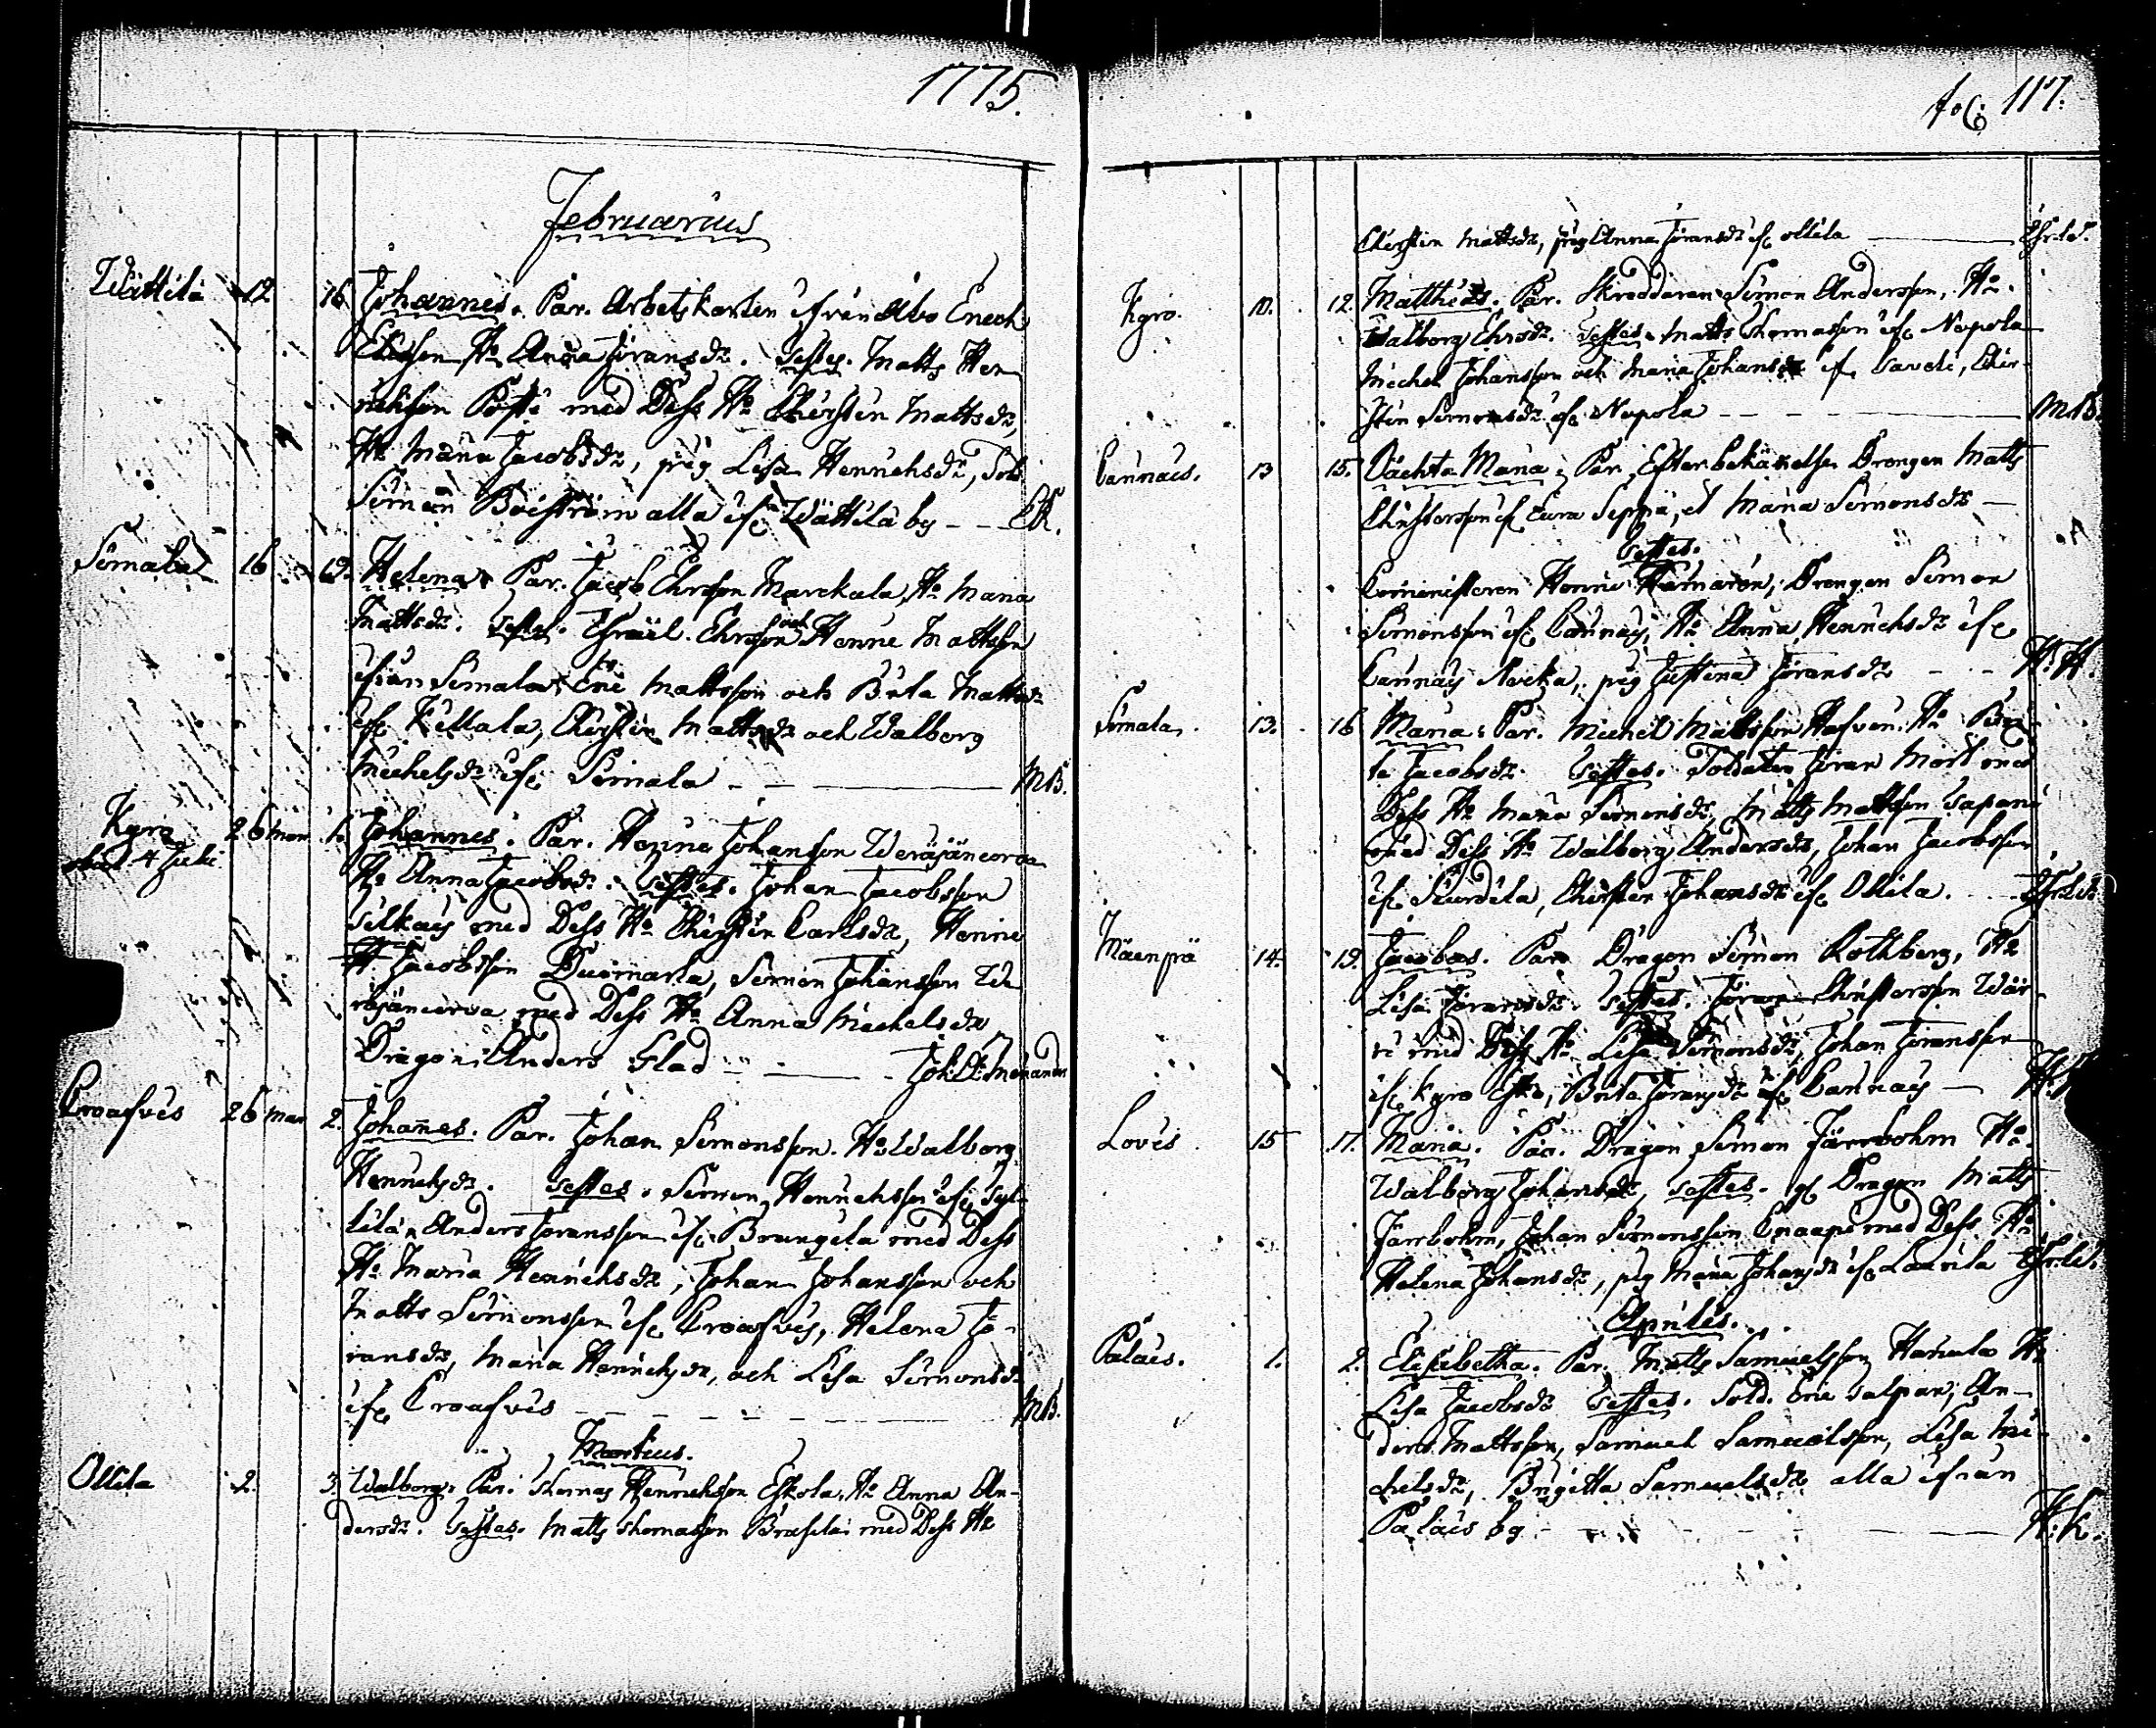 1775.
Februarius
Wättilä 12 16 Johannes. Par. Arbetskarlen ifrån Åbo Erich
Ericsson H:u Anna Jöransdr. Testes. Matts Hen
richson Påsti med Dess H:u Christin Mattsdr,
H:u Maria Jacobsdr, pig Lisa Henrichsdr, Sold
Simon Boiström alla if: Wättilä by - - - CK.
Simala 16 19. Helena. Par. Jacob Ehrsson Marckula, H:u Maria
Mattsdr. Testes. Esräel Ehrsson och Henric Mattsson
ifrån Simala, Eric Mattsson och Brita Mattsdr
if: Killala, Christin Mattsdr och Walborg
Michelsdr if: Simala - - MB.
Kyro 26 Mar. 1. Johannes. Par. Henric Johansson Weräjäncorva
obiit 4 Julii H:u Anna Jacobsdr. Testes. Johan Jacobsson
Silkais med Dess H:u Christin Carlsdr, Henric
Jacobsson Duomarla, Simon Johansson We
räjäncorva med Dess H:u Anna Michelsdr
Dragon Anders Glad - - Joh: Menander
Croafvis 26 Mar 2. Johannes. Par. Johan Simonsson. H:u Walborg
Henrichsdr. Testes. Simon Henrichsson if: Syl-
lilä, Anders Jöransson if: Brungila med Dess
H:u Maria Henrichsdr, Johan Johansson och
Matts Simonsson if: Croafvis, Helena Jö-
ransdr, Maria Henrichsdr, och Lisa Simonsdr
if: Croafvis - - - - - MB.
Martius.
Ollila 2. 3. Walborg. Par. Thomas Henrichsson Eskola, H:u Anna An-
dersdr. Testes. Matts Thomasson med Dess H:u
fol: 117.
Christin Mattsdr, pig Anna Jöransdr if: Ollila
Kyro. 10. 12. Matthias. Par. Skreddaren Simon Andersson, H:u
Walborg Ehrsdr. Testes. Matts Thomasson if: Nopola
Michel Johansson och Maria Johansdr if: Saveli, Chir-
stin Simonsdr if: Nopola - - - MB.
Cannais. 13 15. Oächta Maria, Par. Efter bekännelse Drengen Matts
Christersson if: Eura Seppä, et Maria Simonsdr -
Testes.
Comministeren Henric Hamarén, Drengen Simon
Simonsson if: Cannais, H:u Anna Henrichsdr if:
Cannais Nocka, pig Justina Jöransdr - - H.H.
Simala. 13. 16 Maria. Par. Michel Mattsson Hafven. H:u Bri
ta Jacobsdr. Testes. Soldaten Jöran Mört med
Dess H:u Maria Simonsdr, Matts Mattsson Tapani
med Dess H:u Walborg Andersdr, Johan Jacobsson
if: Siurdila, Christin Johansdr if: Ollila.
Mäenpä 14. 19. Jacobus. Par. Dragon Simon Rothberg, H:u
Lisa Jöransdr. Testes. Jöran Christersson Wär
ri med Dess H:u Lisa Simonsdr, Johan Jöransson
if: Kyro Esko, Brita Jöransdr if: Cannais - H.
Lovis 15 17. Maria. Par. Dragon Simon Järrbohm H:u
Walborg Johansdr, Testes. Dragon Matts
Järrbohm, Johan Simonsson Cnaapi med Dess H:u
Helena Johansdr, pig Maria Johansdr if: Laurila
Aprilis.
Palais. 1. 2. Elisibetha. Par. Matts Samuelsson Hanula H:u
Lisa Jacobsdr Testes. Sold. Eric Salpar, An-
ders Mattsson, Samuel Samuelsson, Lisa Mi-
chelsdr, Brigitta Samuelsdr alla ifrån
Palais by - - - - - H.K.